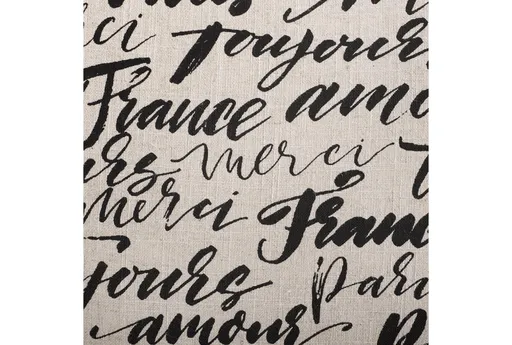 ci toujours
France amo
urs merci
merci Fran
jours Pari
amour P